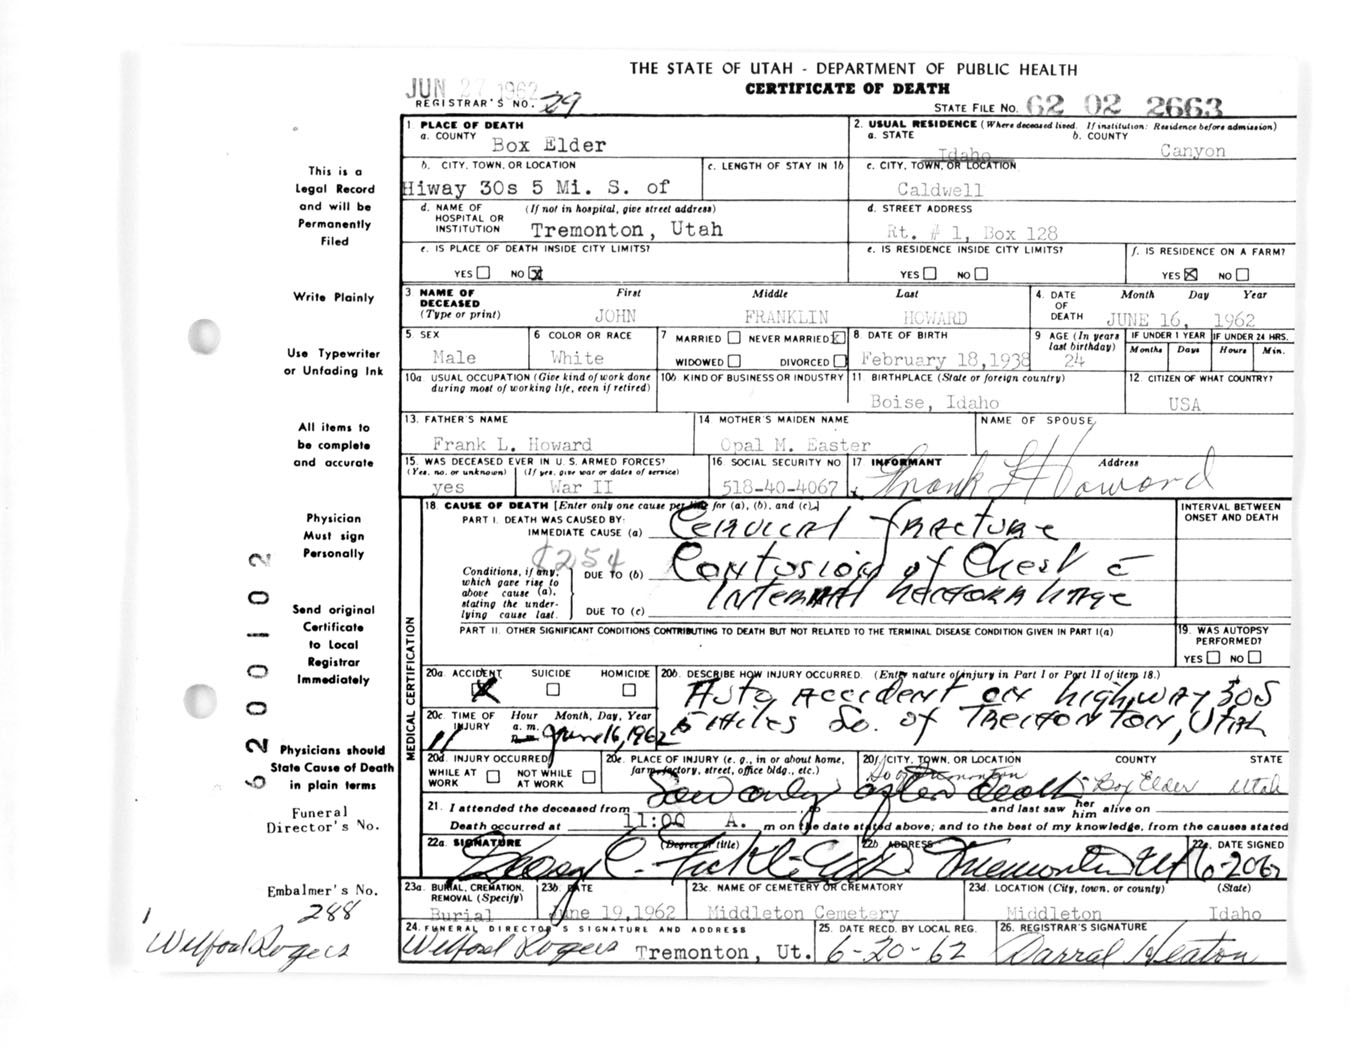 THE STATE OF UTAH - DEPARTMENT OF PUBLIC HEALTH
CERTIFICATE OF DEATH
JUN 27 1962
REGISTRAR'S NO. 29
STATE FILE NO. 62 02 2663
This is a
Legal Record
and will be
Permanently
Filed
Write Plainly
Use Typewriter
or Unfading Ink
All items to
be complete
and accurate
Physician
Must sign
Personally
Send original
Certificate
to Local
Registrar
Immediately
Physicians should
State Cause of Death
in plain terms
Funeral
Director's No.
Embalmer's No.
288
Wilford Rogers
62 00102
1. PLACE OF DEATH
a. COUNTY Box Elder
2. USUAL RESIDENCE (Where deceased lived. If institution: Residence before admission)
a. STATE Idaho b. COUNTY Canyon
b. CITY, TOWN, OR LOCATION
Hiway 30s 5 Mi. S. of
c. LENGTH OF STAY IN 1b
c. CITY, TOWN, OR LOCATION
Caldwell
d. NAME OF HOSPITAL OR INSTITUTION (If not in hospital, give street address)
Tremonton, Utah
d. STREET ADDRESS
Rt. # 1, Box 128
e. IS PLACE OF DEATH INSIDE CITY LIMITS?
YES NO X
e. IS RESIDENCE INSIDE CITY LIMITS?
YES NO
f. IS RESIDENCE ON A FARM?
YES X NO
3. NAME OF DECEASED (Type or print) First Middle Last
JOHN FRANKLIN HOWARD
4. DATE OF DEATH Month Day Year
JUNE 16, 1962
5. SEX
Male
6 COLOR OR RACE
White
7 MARRIED NEVER MARRIED X
WIDOWED DIVORCED
8. DATE OF BIRTH
February 18,1938
9 AGE (In years last birthday)
24
IF UNDER 1 YEAR Months Days
IF UNDER 24 HRS. Hours Min.
10a USUAL OCCUPATION (Give kind of work done during most of working life, even if retired)
10b KIND OF BUSINESS OR INDUSTRY
11 BIRTHPLACE (State or foreign country)
Boise, Idaho
12 CITIZEN OF WHAT COUNTRY?
USA
13. FATHER'S NAME
Frank L. Howard
14 MOTHER'S MAIDEN NAME
Opal M. Easter
NAME OF SPOUSE
15. WAS DECEASED EVER IN U.S. ARMED FORCES?
(Yes, no. or unknown) (If yes, give war or dates of service)
yes War II
16 SOCIAL SECURITY NO
518-40-4067
17 INFORMANT Address
Frank L Howard
MEDICAL CERTIFICATION
18 CAUSE OF DEATH [Enter only one cause per line for (a), (b), and (c).]
PART I. DEATH WAS CAUSED BY:
IMMEDIATE CAUSE (a) Cervical fracture
INTERVAL BETWEEN ONSET AND DEATH
Conditions, if any, which gave rise to above cause (a), stating the underlying cause last.
DUE TO (b) Contusion of Chest c
Internal hemorrhage
DUE TO (c)
PART II. OTHER SIGNIFICANT CONDITIONS CONTRIBUTING TO DEATH BUT NOT RELATED TO THE TERMINAL DISEASE CONDITION GIVEN IN PART I(a)
19. WAS AUTOPSY PERFORMED?
YES NO
20a. ACCIDENT X SUICIDE HOMICIDE
20b. DESCRIBE HOW INJURY OCCURRED. (Enter nature of injury in Part I or Part II of item 18.)
Auto accident on highway 30S
5 miles So. of Tremonton, Utah
20c. TIME OF INJURY Hour Month, Day, Year
11 a. m. p.m. June 16, 1962
20d. INJURY OCCURRED
WHILE AT WORK NOT WHILE AT WORK
20e. PLACE OF INJURY (e. g., in or about home, farm, factory, street, office bldg., etc.)
20f. CITY, TOWN, OR LOCATION COUNTY STATE
So of Tremonton Box Elder Utah
Saw only after death
21. I attended the deceased from and last saw her him alive on
Death occurred at 11:00 A. m on the date stated above; and to the best of my knowledge, from the causes stated
22a. SIGNATURE (Degree or title)
22b ADDRESS
Tremonton Ut
22c. DATE SIGNED
6-2062
23a. BURIAL, CREMATION, REMOVAL (Specify)
Burial
23b. DATE
June 19,1962
23c. NAME OF CEMETERY OR CREMATORY
Middleton Cemetery
23d. LOCATION (City, town, or county) (State)
Middleton Idaho
24. FUNERAL DIRECTOR'S SIGNATURE AND ADDRESS
Wilford Rogers Tremonton, Ut.
25. DATE RECD. BY LOCAL REG.
6-20-62
26. REGISTRAR'S SIGNATURE
Darral Heaton